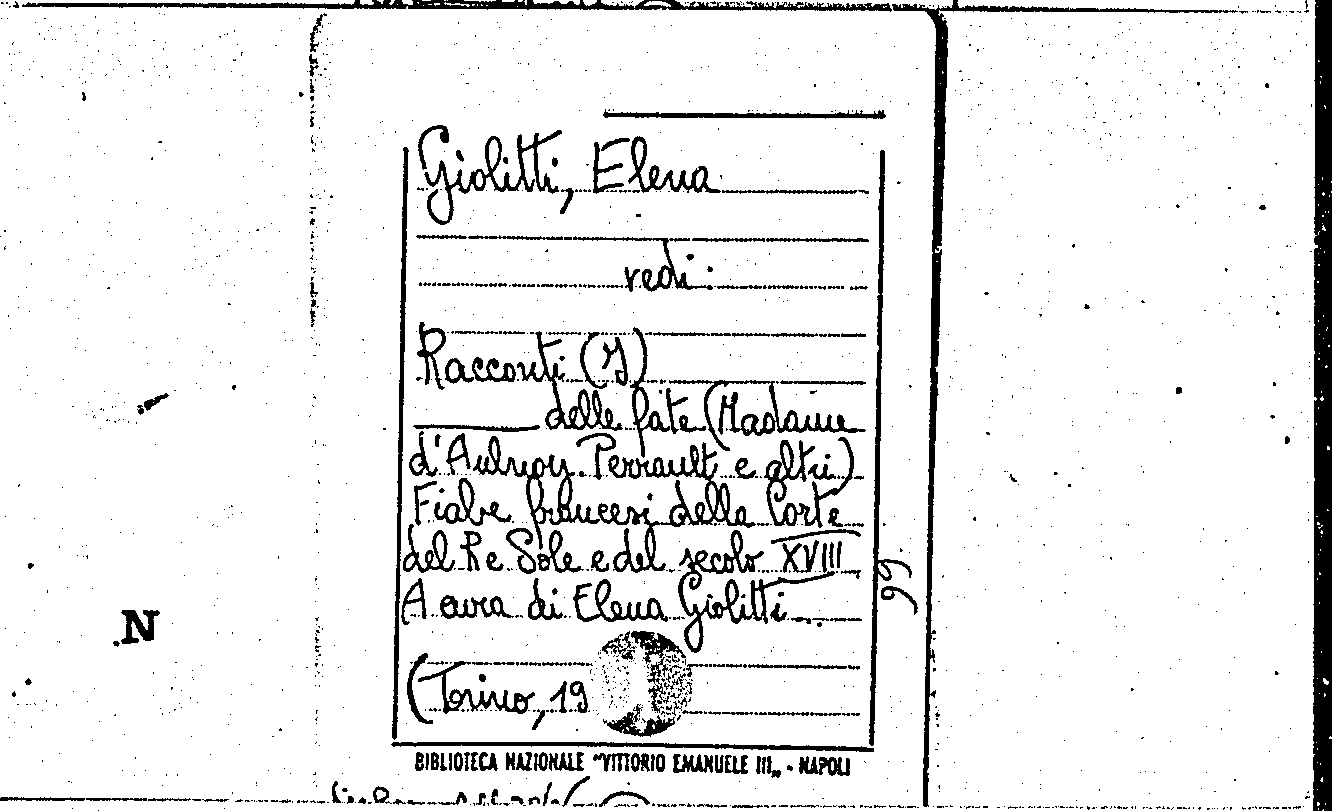 Giolitti, Elena
vedi:
Racconti (I)
delle fate (Madame
d'Aulnoy. Perrault e altri)
Fiabe francesi della Corte
del Re Sole e del secolo XVIII
A cura di Elena Giolitti...
(Torino, 19
BIBLIOTECA NAZIONALE "VITTORIO EMANUELE III„ - NAPOLI
66
N